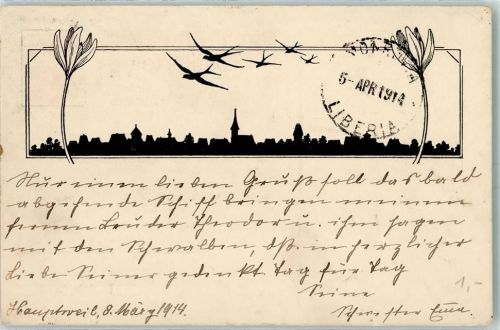 MONROVIA
5-APR 1914
LIBERIA
Nur einen lieben Gruß soll das bald
abgehende Schiff bringen meinem
fernen Bruder Theodor u. ihm sagen
mit den Schwalben, dß in herzlicher
Liebe Seiner gedenkt Tag für Tag
Seine
Hauptweil, 8. März 1914. Schwester Emma.
1,-